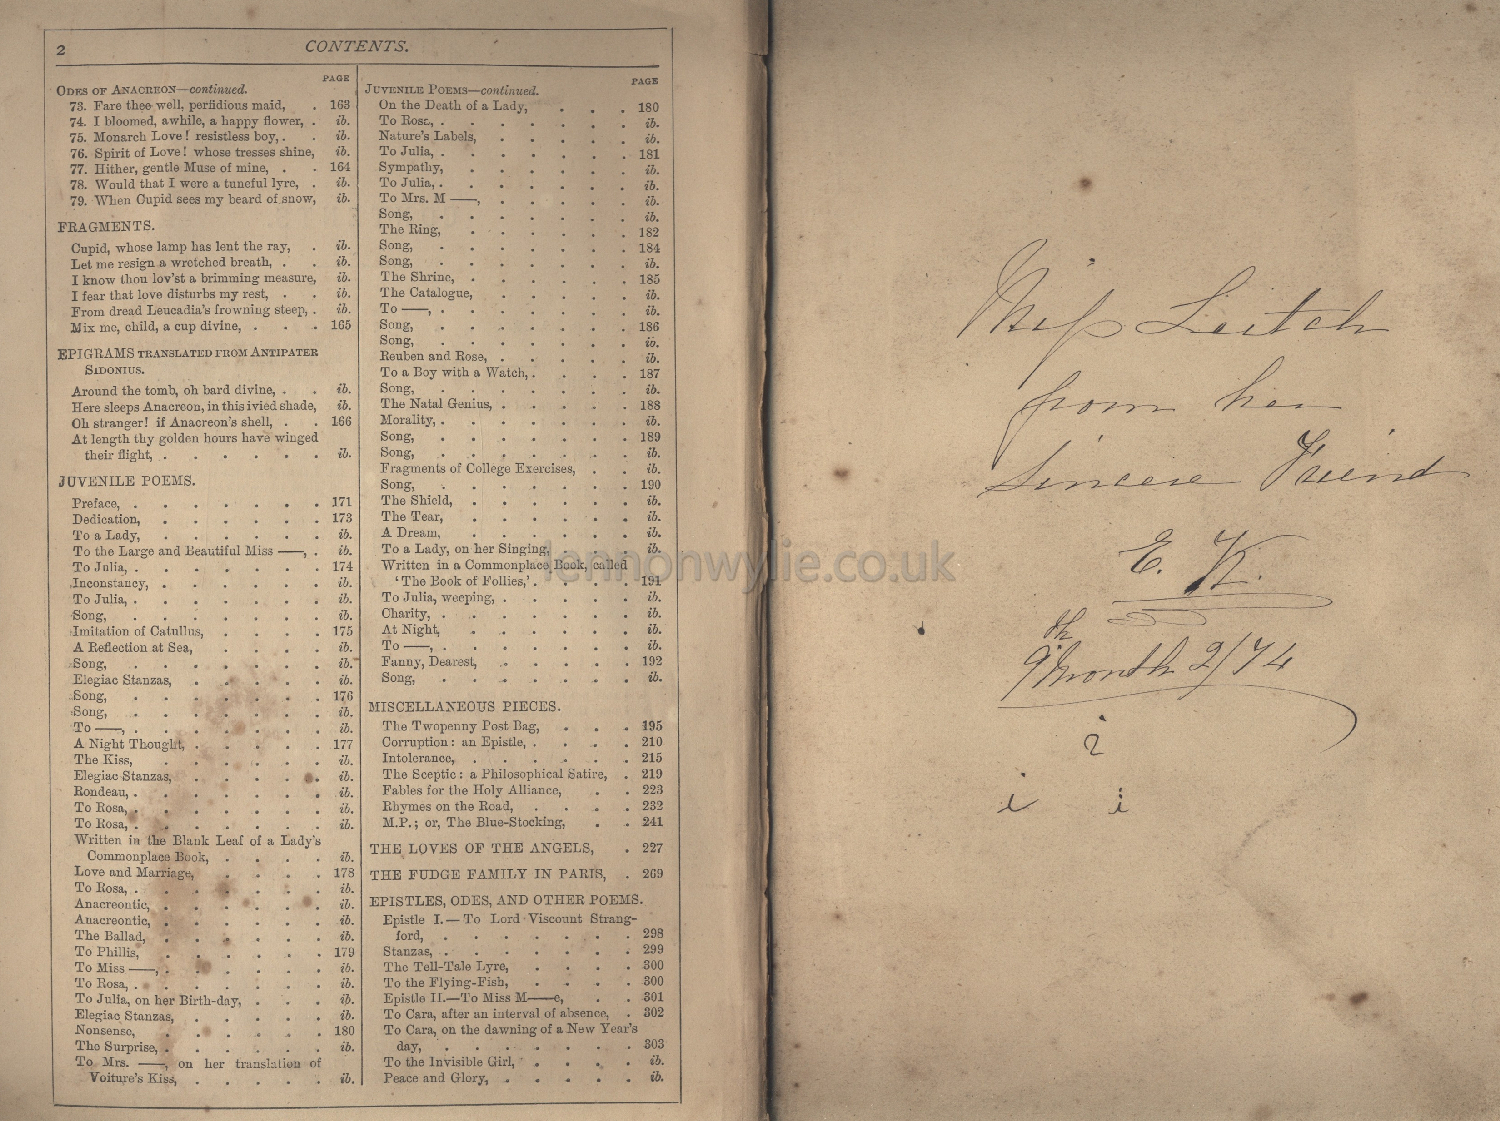 2
CONTENTS.
PAGE
ODES OF ANACREON—continued.
73. Fare thee well, perfidious maid, . 163
74. I bloomed, awhile, a happy flower, . ib.
75. Monarch Love! resistless boy, . . ib.
76. Spirit of Love! whose tresses shine, ib.
77. Hither, gentle Muse of mine, . . 164
78. Would that I were a tuneful lyre, . ib.
79. When Cupid sees my beard of snow, ib.
FRAGMENTS.
Cupid, whose lamp has lent the ray, . ib.
Let me resign a wretched breath, . . ib.
I know thou lov'st a brimming measure, ib.
I fear that love disturbs my rest, . . ib.
From dread Leucadia's frowning steep, . ib.
Mix me, child, a cup divine, . . . 165
EPIGRAMS TRANSLATED FROM ANTIPATER
SIDONIUS.
Around the tomb, oh bard divine, . . ib.
Here sleeps Anacreon, in this ivied shade, ib.
Oh stranger! if Anacreon's shell, . . 166
At length thy golden hours have winged
their flight, . . . . . . ib.
JUVENILE POEMS.
Preface, . . . . . . . 171
Dedication, . . . . . . 173
To a Lady, . . . . . . ib.
To the Large and Beautiful Miss ——, . ib.
To Julia, . . . . . . . 174
Inconstancy, . . . . . . ib.
To Julia, . . . . . . . ib.
Song, . . . . . . . ib.
Imitation of Catullus, . . . . 175
A Reflection at Sea, . . . . ib.
Song, . . . . . . . ib.
Elegiac Stanzas, . . . . . ib.
Song, . . . . . . . 176
Song, . . . . . . . ib.
To ——, . . . . . . . ib.
A Night Thought, . . . . . 177
The Kiss, . . . . . . ib.
Elegiac Stanzas, . . . . . ib.
Rondeau, . . . . . . . ib.
To Rosa, . . . . . . . ib.
To Rosa, . . . . . . . ib.
Written in the Blank Leaf of a Lady's
Commonplace Book, . . . . ib.
Love and Marriage, . . . . 178
To Rosa, . . . . . . . ib.
Anacreontic, . . . . . . ib.
Anacreontic, . . . . . . ib.
The Ballad, . . . . . . ib.
To Phillis, . . . . . . 179
To Miss ——, . . . . . . ib.
To Rosa, . . . . . . . ib.
To Julia, on her Birth-day, . . . ib.
Elegiac Stanzas, . . . . . ib.
Nonsense, . . . . . . 180
The Surprise, . . . . . . ib.
To Mrs. ——, on her translation of
Voiture's Kiss, . . . . . ib.
PAGE
JUVENILE POEMS—continued.
On the Death of a Lady, . . . 180
To Rosa, . . . . . . . ib.
Nature's Labels, . . . . . ib.
To Julia, . . . . . . . 181
Sympathy, . . . . . . ib.
To Julia, . . . . . . . ib.
To Mrs. M ——, . . . . . ib.
Song, . . . . . . . ib.
The Ring, . . . . . . 182
Song, . . . . . . . 184
Song, . . . . . . . ib.
The Shrine, . . . . . . 185
The Catalogue, . . . . . ib.
To ——, . . . . . . . ib.
Song, . . . . . . . 186
Song, . . . . . . . ib.
Reuben and Rose, . . . . . ib.
To a Boy with a Watch, . . . . 187
Song, . . . . . . . ib.
The Natal Genius, . . . . . 188
Morality, . . . . . . . ib.
Song, . . . . . . . 189
Song, . . . . . . . ib.
Fragments of College Exercises, . . ib.
Song, . . . . . . . 190
The Shield, . . . . . . ib.
The Tear, . . . . . . ib.
A Dream, . . . . . . ib.
To a Lady, on her Singing, . . ib.
Written in a Commonplace Book, called
'The Book of Follies,' . . . . 191
To Julia, weeping, . . . . . ib.
Charity, . . . . . . . ib.
At Night, . . . . . . ib.
To ——, . . . . . . . ib.
Fanny, Dearest, . . . . . 192
Song, . . . . . . . ib.
MISCELLANEOUS PIECES.
The Twopenny Post Bag, . . . 195
Corruption: an Epistle, . . . . 210
Intolerance, . . . . . . 215
The Sceptic: a Philosophical Satire, . 219
Fables for the Holy Alliance, . . 223
Rhymes on the Road, . . . . 232
M.P.; or, The Blue-Stocking, . . 241
THE LOVES OF THE ANGELS, . 227
THE FUDGE FAMILY IN PARIS, . 269
EPISTLES, ODES, AND OTHER POEMS.
Epistle I.—To Lord Viscount Strang-
ford, . . . . . . . 298
Stanzas, . . . . . . . 299
The Tell-Tale Lyre, . . . . 300
To the Flying-Fish, . . . . 300
Epistle II.—To Miss M——e, . . 301
To Cara, after an interval of absence, . 302
To Cara, on the dawning of a New Year's
day, . . . . . . . 303
To the Invisible Girl, . . . . ib.
Peace and Glory, . . . . . ib.
Miss Leitch
from her
Sincere Friend
E. K.
9th Month 2/74
2
i i
lennonwylie.co.uk